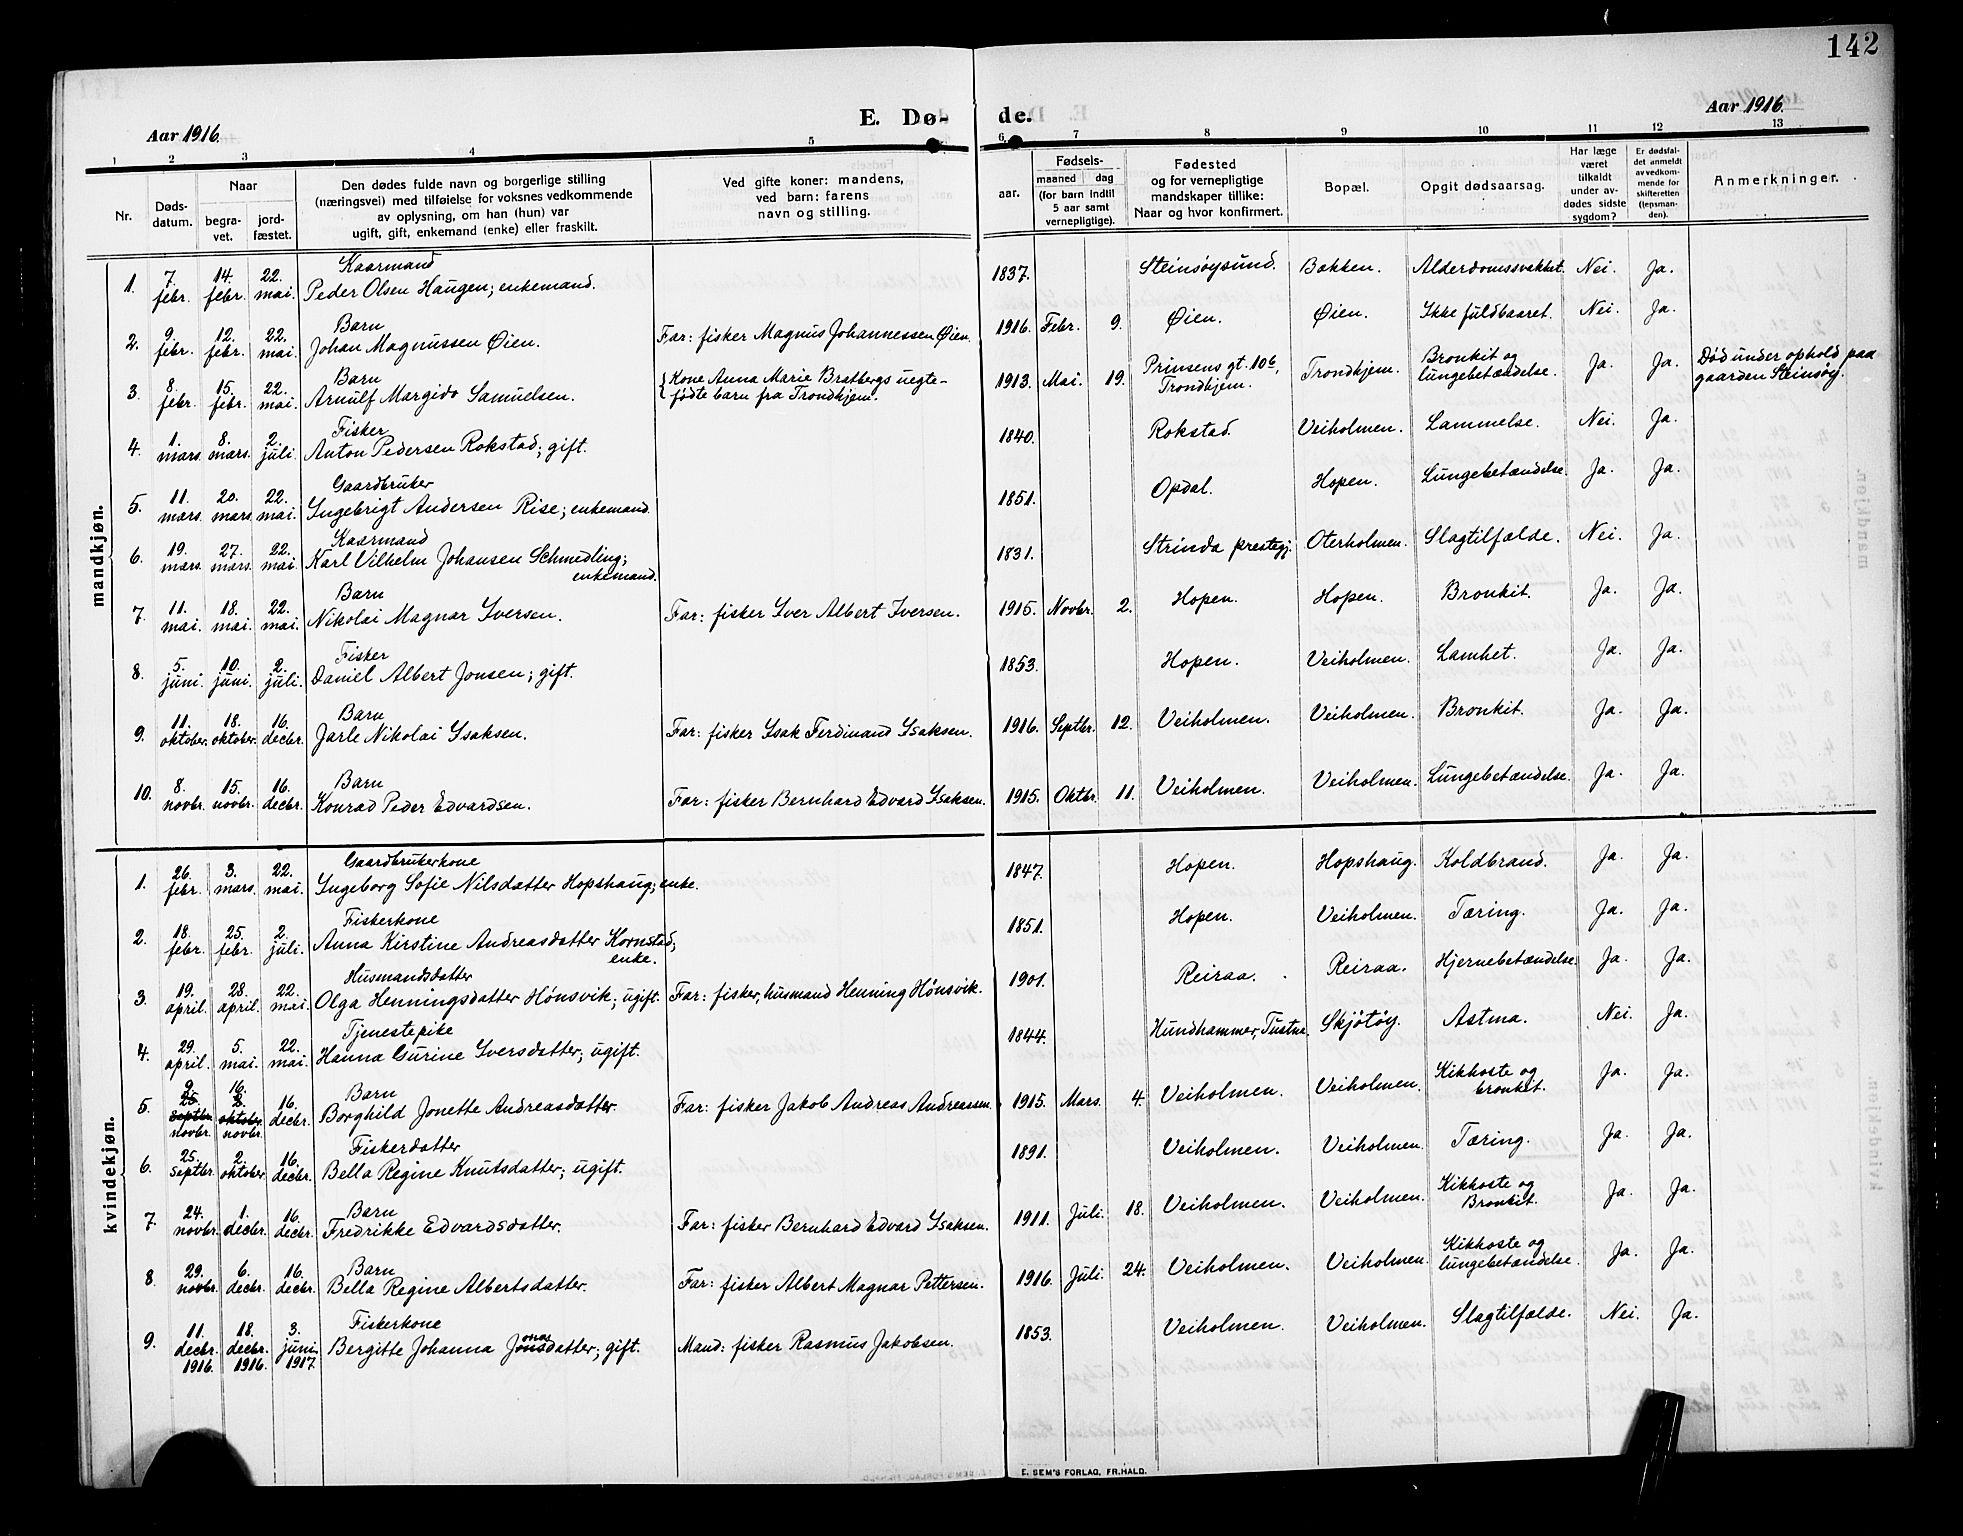 142
Aar 1916.
E. Dø-
de.
Aar 1916.
1 2 3 4 5 6. 7 8 9 10 11 12 13
Nr.
Døds-
datum.
Naar
begra-
vet.
jord-
fæstet.
Den dødes fulde navn og borgerlige stilling
(næringsvei) med tilføielse for voksnes vedkommende
av oplysning, om han (hun) var
ugift, gift, enkemand (enke) eller fraskilt.
Ved gifte koner: mandens,
ved barn: farens
navn og stilling.
aar.
Fødsels-
maaned dag
(for barn indtil
5 aar samt
vernepligtige).
Fødested
og for vernepligtige
mandskaper tillike:
Naar og hvor konfirmert.
Bopæl.
Opgit dødsaarsag.
Har læge
været
tilkaldt
under av-
dødes sidste
sygdom?
Er dødsfal-
det anmeldt
av vedkom-
mende for
skifteretten
(lensman-
den).
Anmerkninger.
mandkjøn.
7. 14. 22. Kaarmand
1. febr. febr. mai. Peder Olsen Haugen; enkemand. 1837. Steinsøysund. Bakken. Alderdomssvakhet. Nei. Ja.
9. 12. 22. Barn
2. febr. febr. mai. Johan Magnussen Øien. Far: fisker Magnus Johannessen Øien. 1916. Febr. 9. Øien. Øien. Ikke fuldbaaret. Nei. Ja.
8. 15. 22. Barn Kone Anna Marie Bratbergs uegte- Prinsens gt. 10b, Bronkit og Død under ophold paa
3. febr. febr. mai. Arnulf Margido Samuelsen. fødte barn fra Trondhjem. 1913. Mai. 19. Trondhjem. Trondhjem. lungebetændelse. Ja. Ja. gaarden Steinsøy.
1. 8. 2. Fisker
4. mars. mars. juli. Anton Pedersen Rokstad; gift. 1840. Rokstad. Veiholmen. Lammelse. Nei. Ja.
11. 20. 22. Gaardbruker
5. mars. mars. mai. Ingebrigt Andersen Rise; enkemand. 1851. Opdal. Hopen. Lungebetændelse. Ja. Ja.
19. 27. 22. Kaarmand
6. mars. mars. mai. Karl Vilhelm Johansen Schmedling; 1831. Strinda prestegj. Oterholmen. Slagtilfælde. Nei. Ja.
enkemand.
11. 18. 22. Barn
7. mai. mai. mai. Nikolai Magnar Iversen. Far: fisker Iver Albert Iversen. 1915. Novbr. 2. Hopen. Hopen. Bronkit. Ja. Ja.
5. 10. 2. Fisker
8. juni. juni. juli. Daniel Albert Jonsen; gift. 1853. Hopen. Veiholmen. Lamhet. Ja. Ja.
11. 18. 16. Barn
9. oktober. oktober. decbr. Jarle Nikolai Isaksen. Far: fisker Isak Ferdinand Isaksen. 1916. Septbr. 12. Veiholmen. Veiholmen. Bronkit. Ja. Ja.
8. 15. 16. Barn
10. novbr. novbr. decbr. Konrad Peder Edvardsen. Far: fisker Bernhard Edvard Isaksen. 1915. Oktbr. 11. Veiholmen. Veiholmen. Lungebetændelse. Ja. Ja.
kvindekjøn.
26. 3. 22. Gaardbrukerkone
1. febr. mars. mai. Ingeborg Sofie Nilsdatter Hopshaug; enke. 1847. Hopen. Hopshaug. Koldbrand. Ja. Ja.
18. 25. 2. Fiskerkone
2. febr. febr. juli. Anna Kirstine Andreasdatter Kornstad; 1851. Hopen. Veiholmen. Tæring. Ja. Ja.
enke.
19. 28. 22. Husmandsdatter
3. april. april. mai. Olga Henningsdatter Hønsvik; ugift. Far: fisker, husmand Henning Hønsvik. 1901. Reiraa. Reiraa. Hjernebetændelse. Ja. Ja.
29. 5. 22. Tjenestepike
4. april. mai. mai. Hanna Gurine Iversdatter; ugift. 1844. Hundhammer, Tustna. Skjøtøy. Astma. Nei. Ja.
9. 16.
25. 2. 16. Barn Kikhoste og
5. septbr. oktober. decbr. Borghild Jonette Andreasdatter. Far: fisker Jakob Andreas Andreassen. 1915. Mars. 4. Veiholmen. Veiholmen. bronkit. Ja. Ja.
novbr. novbr.
25. 2. 16. Fiskerdatter
6. septbr. oktober. decbr. Bella Regine Knutsdatter; ugift. 1891. Veiholmen. Veiholmen. Tæring. Ja. Ja.
24. 1. 16. Barn Kikhoste og
7. novbr. decbr. decbr. Fredrikke Edvardsdatter. Far: fisker Bernhard Edvard Isaksen. 1911. Juli. 18. Veiholmen. Veiholmen. Bronkit. Ja. Ja.
29. 6. 16. Barn Kikhoste og
8. novbr. decbr. decbr. Bella Regine Albertsdatter. Far: fisker Albert Magnar Pettersen. 1916. Juli. 24. Veiholmen. Veiholmen. lungebetændelse. Ja. Ja.
11. 18. 3. Fiskerkone
9. decbr. decbr. juni. Bergitte Johanna Jonasdatter; gift. Mand: fisker Rasmus Jakobsen. 1853. Veiholmen. Veiholmen. Slagtilfælde. Nei. Ja.
1916. 1916. 1917.
E. SEM'S FORLAG, FR.HALD.